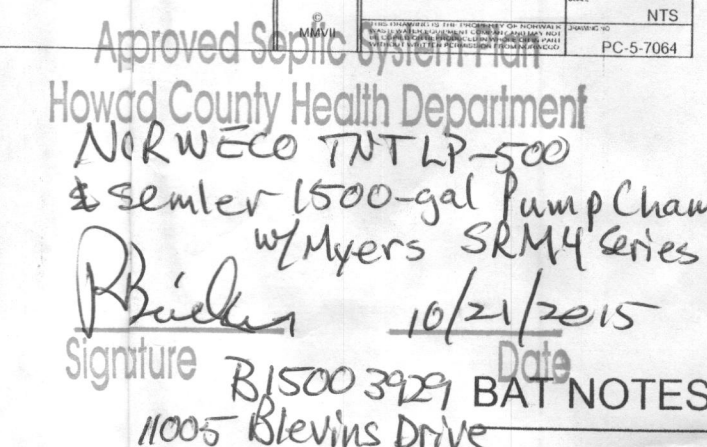 NTS
©
MMVII
THIS DRAWING IS THE PROPERTY OF NORWALK
WASTEWATER EQUIPMENT COMPANY AND MAY NOT
BE COPIED OR REPRODUCED IN WHOLE OR IN PART
WITHOUT WRITTEN PERMISSION FROM NORWECO
DRAWING NO
PC-5-7064
Approved Septic System Plan
Howad County Health Department
NORWECO TNT LP-500
& Semler 1500-gal Pump Cham
w/Myers SRM4 Series
10/21/2015
Signature
Date
B15003929
BAT NOTES
11005 Blevins Drive